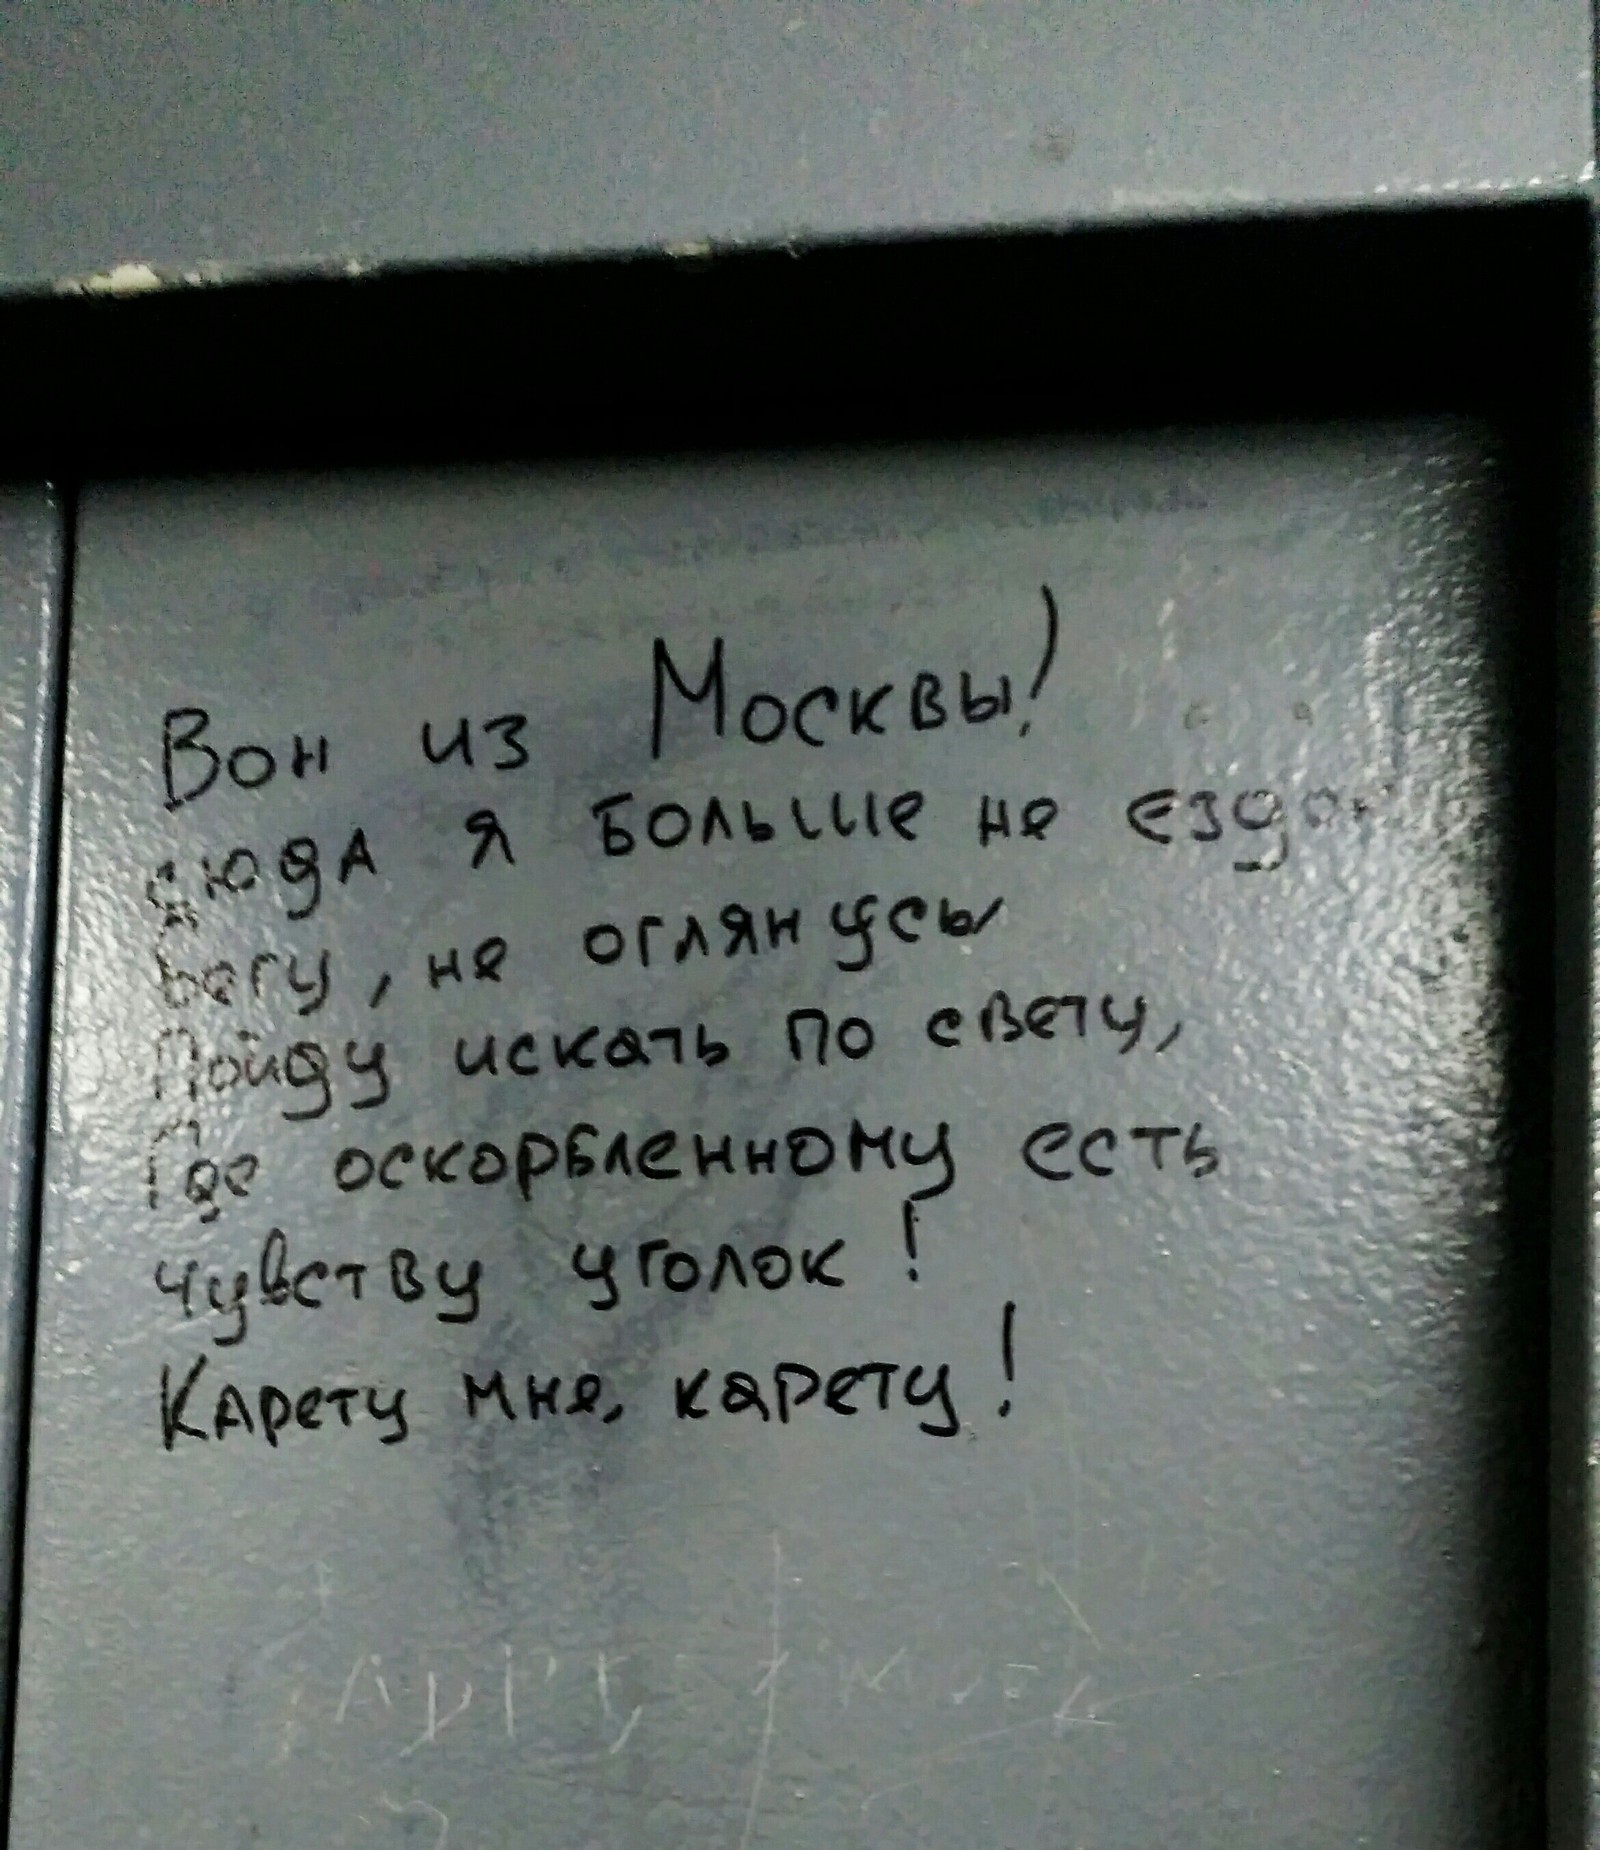 Вон из Москвы!
сюда я больше не ездок
Бегу, не оглянусь
Пойду искать по свету,
Где оскорбленному есть
чувству уголок!
Карету мне, карету!